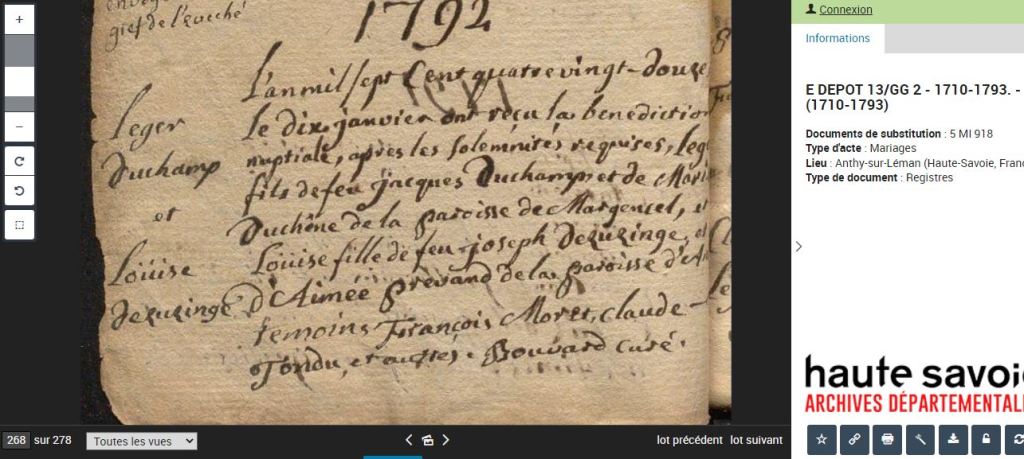 envoyé
gref de l'evêché
1792
Leger
Duchamp
et
Loüise
Dezuzinge
L'an mil sept Cent quatre vingt-douze
le dix janvier ont reçu la benediction
nuptiale, après les solemnités requises, leg
fils de feu jacques Duchamp et de Mari
Duchêne de la paroisse de Margencel, et
Loüise fille de feu joseph Dezuzinge, et
d'Aimée prevand de la paroisse d'An
temoins François Moret, claude
Tondu, et autres. Bouvard curé.
268 sur 278
Toutes les vues
lot précédent lot suivant
Connexion
Informations
E DEPOT 13/GG 2 - 1710-1793. -
(1710-1793)
Documents de substitution : 5 MI 918
Type d'acte : Mariages
Lieu : Anthy-sur-Léman (Haute-Savoie, Franc
Type de document : Registres
haute savoie
ARCHIVES DÉPARTEMENTAL